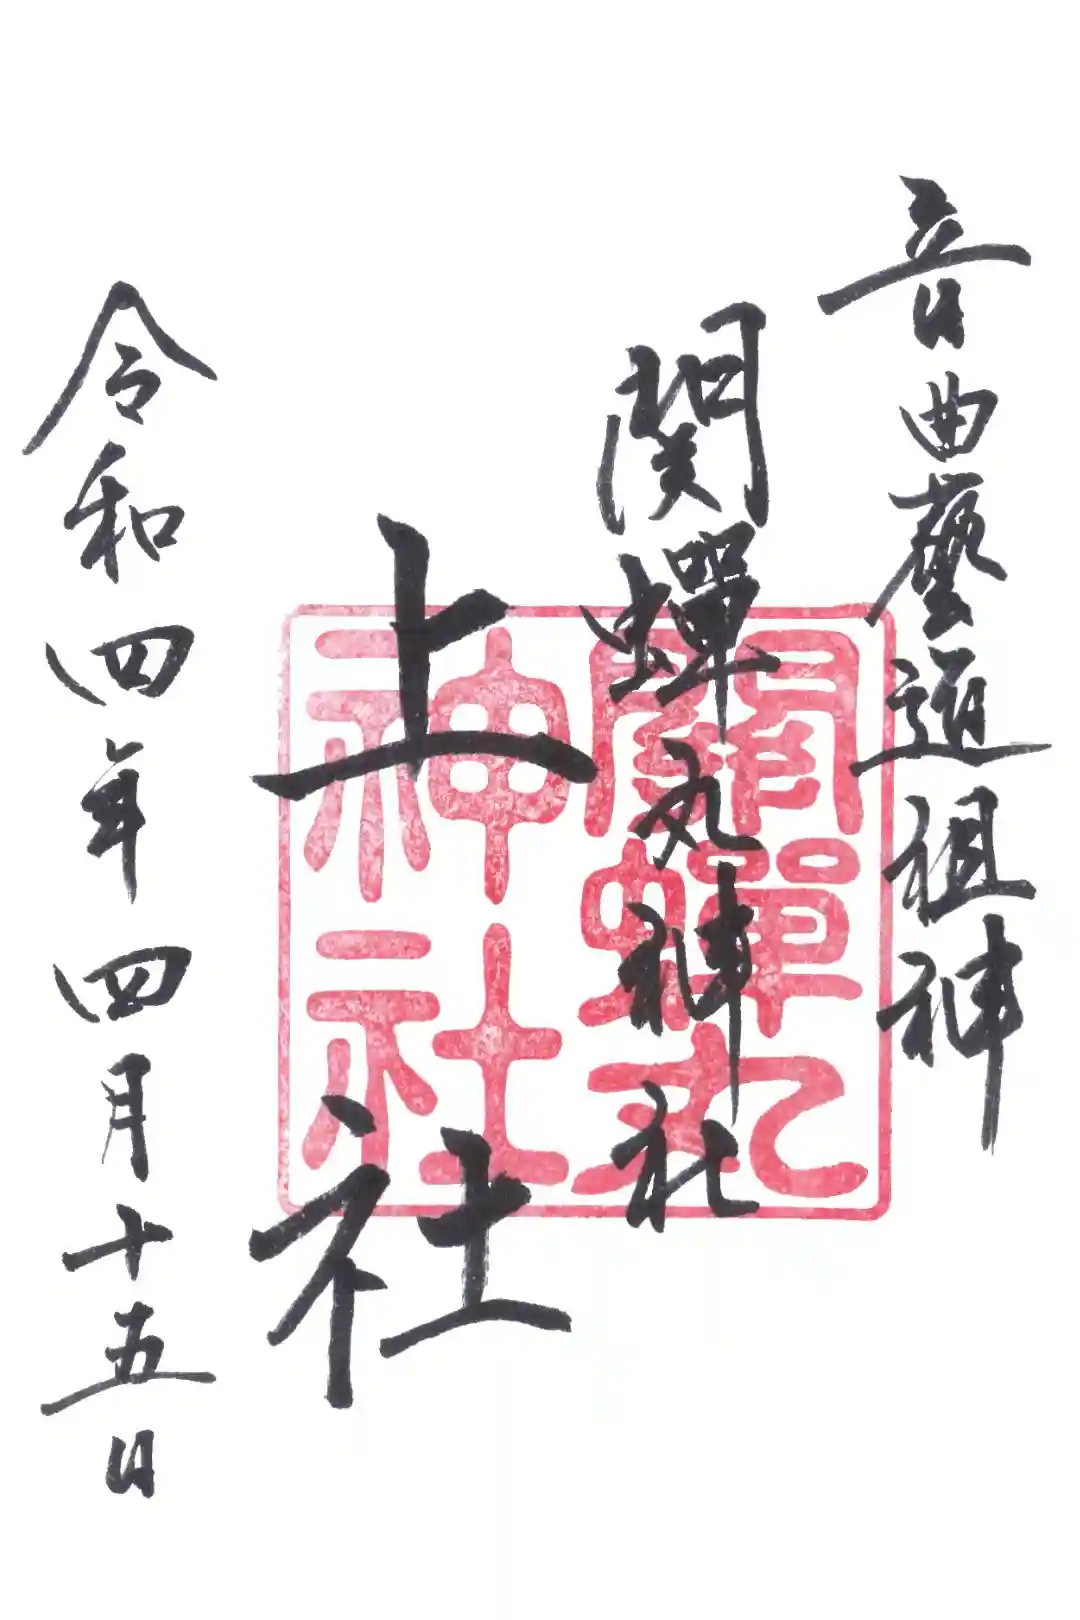 音曲藝道祖神
関蟬丸神社
上社
關蟬丸
神社
令和四年四月十五日